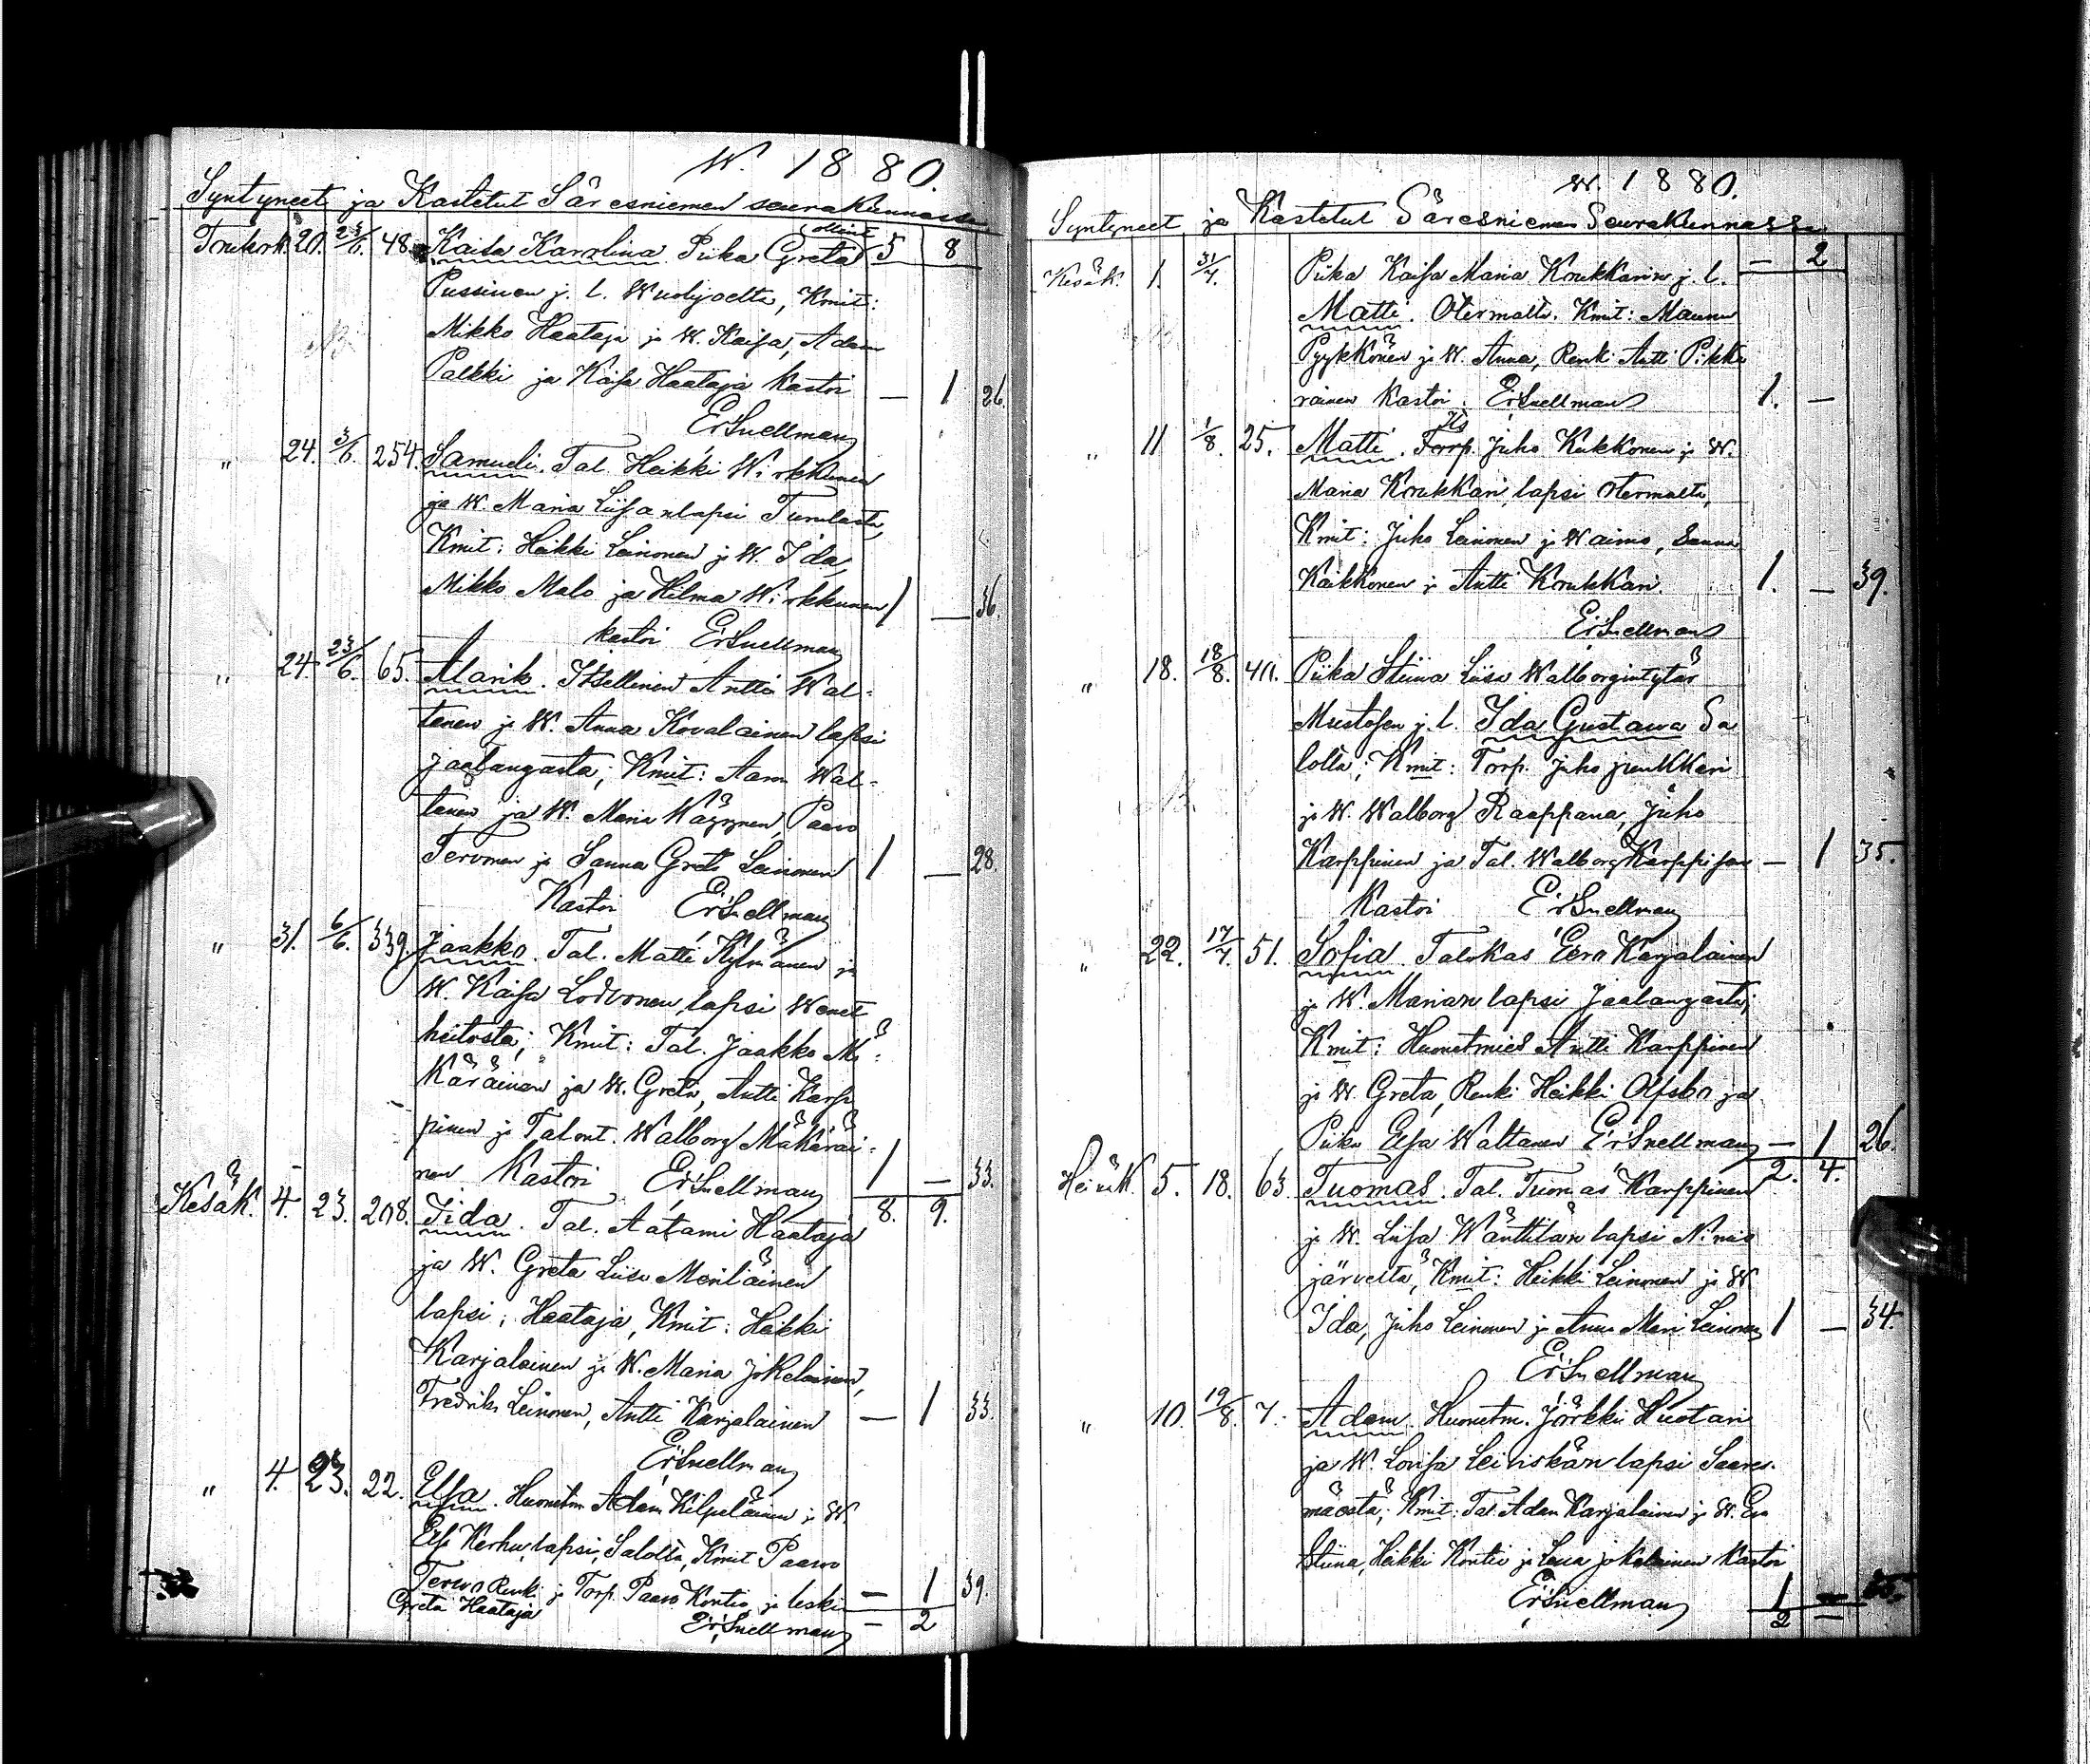 W. 1880.
Syntyneet ja Kastetut Säresniemen seurakunnassa
Toukok. 20. 23/6. 48. Kaisa Karolina. Piika Greta 5 8
Pussinen j. l. Wuolijoelta, Kmit:
Mikko Haataja ja W. Kaisa, Adam
Palkki ja Kaisa Haataja kastoi — 1 26.
ErSnellman
" 24. 3/6. 254. Samueli. Tal. Heikki Wirkkunen
ja W. Maria Liisan lapsi
Kmit: Heikki Leinonen ja W. Ida,
Mikko Malo ja Hilma Wirkkunen 1 — 36.
kastoi ErSnellman
" 24. 23/6. 65. Alarik. Itsellinen Antti Wal-
tanen ja W. Anna Kovalainen lapsi
Jaalangasta; Kmit: Aam Wal-
tanen ja W. Maria Käyrynen, Paavo
Tervonen ja Sanna Greta Leinonen 1 — 28.
Kastoi ErSnellman
" 31. 6/6. 339. Jaakko. Tal. Matti Kylmänen ja
W. Kaisa Lodvonen lapsi Wenet
heitosta; Kmit: Tal. Jaakko Mä-
käräinen ja W. Greta, Antti Karp
pinen ja Talont. Walborg Mäkäräi-
nen Kastoi ErSnellman 1 — 33.
8. 9.
Kesäk. 4. 23. 208. Iida. Tal. Aatami Haataja
ja W. Greta Liisa Meriläinen
lapsi; Haataja, Kmit: Heikki
Karjalainen ja W. Maria Jokelainen,
Fredrik Leinonen, Antti Karjalainen — 1 33.
ErSnellman
" 4. 23. 22. Elsa. Huonetm. Adam Kilpeläinen ja W.
Elsa Kerhu, lapsi, Salolta, Kmit Paavo
Tervo Renki ja Torp. Paavo Kontio ja leski — 1 39.
Greta Haataja ErSnellman — 2
W. 1880.
Syntyneet ja Kastetut Säresniemen Seurakunnassa
— 2
Kesäk. 1. 31/7. Piika Kaisa Maria Koukkarin j. l.
Matti. Otermalta. Kmit: Maunu
Pyykkönen ja W. Anna, Renki Antti Pikka
rainen Kastoi. ErSnellman 1. —
" 11 1/8. 25. Matti. Torp. Juho Kukkonen ja W.
Maria Koukkari, lapsi Otermalta,
Kmit: Juho Leinonen ja Waimo, Sanna
Kaikkonen ja Antti Koukkari. 1. — 39.
ErSnellman
" 18. 18/8. 40. Piika Stiina Liisa Walborgintytär
Mustosen j. l. Ida Gustava Sa
lolta; Kmit: Torp. Juho Junkkari
ja W. Walborg Raappana, Juho
Karppinen ja Tal. Walborg Karppisen — 1 35.
Kastoi ErSnellman
" 22. 17/7. 51. Sofia. Talokas Eero Karjalainen
ja W. Marian lapsi Jaalangasta;
Kmit: Huonetmies Antti Karppinen
ja W. Greta, Renki Heikki Olfsbo ja
Piika Elsa Waltanen ErSnellman — 1 26.
2. 4.
Heinäk 5. 18. 63. Tuomas. Tal. Tuomas Karppinen
ja W. Liisa Wänttilän lapsi Nimis
järveltä, Kmit: Heikki Leinonen ja W
Ida, Juho Leinonen ja Anna Mari Leinonen 1 — 34.
ErSnellman
" 10. 19/8. 7. Adam. Huonetm. Jörkki Huotari
ja W. Lovisa Leiviskän lapsi Saares-
mäestä; Kmit: Tal. Adam Karjalainen ja W. Eva
Stiina, Heikki Kontio ja Leena Jokelainen Kastoi
ErSnellman 1 —
2 —